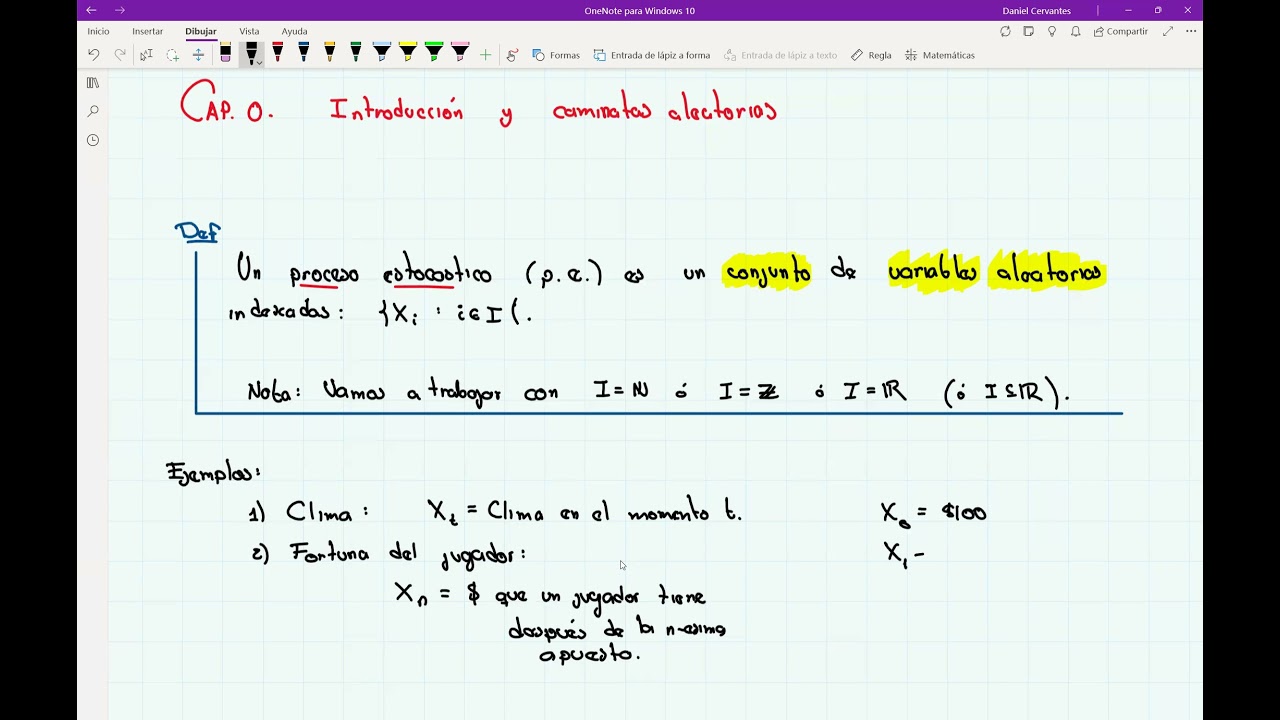 OneNote para Windows 10
Daniel Cervantes
Inicio Insertar Dibujar Vista Ayuda
Compartir
Formas Entrada de lápiz a forma Entrada de lápiz a texto Regla Matemáticas
CAP. 0. Introducción y caminatas aleatorias
Def
Un proceso estocastico (p.e.) es un conjunto de variables aleatorias
indexadas: {X_i : i∈I}.
Nota: Vamos a trabajar con I=ℕ ó I=ℤ ó I=ℝ (ó I⊆ℝ).
Ejemplos:
1) Clima: X_t = Clima en el momento t.
X_0 = $100
2) Fortuna del jugador:
X_1 =
X_n = $ que un jugador tiene
después de la n-esima
apuesta.